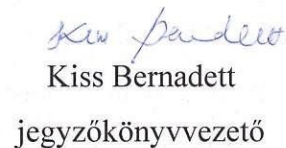 Kiss Bernadett
Kiss Bernadett
jegyzőkönyvvezető